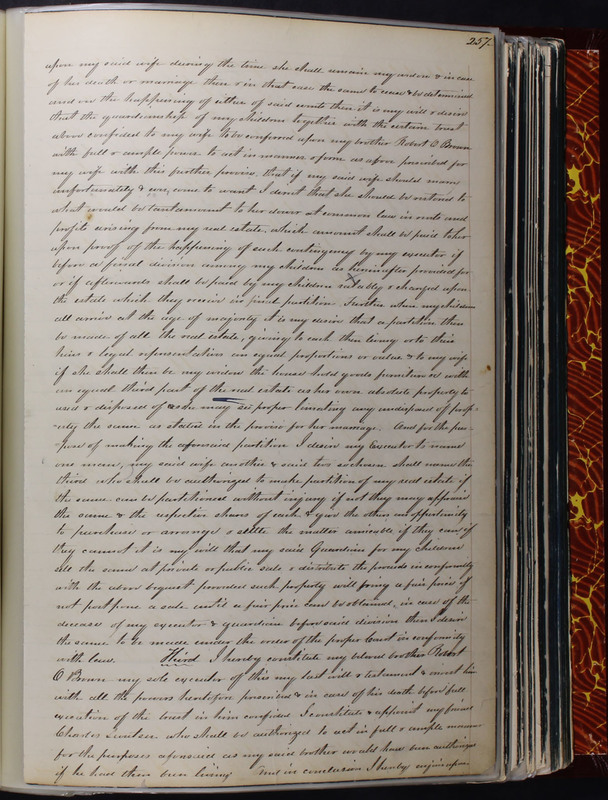 257.
upon my said wife during the time she shall remain my widow & in case
of her death or marriage then & in that case the same to cease & be determined
and on the happening of either of said events then it is my will & desire
that the guardianship of my children together with the certain trust
above confided to my wife to be conferred upon my brother Robert O Brown
with full & ample power to act in manner & form as above provided for
my wife with this further proviso, that if my said wife should marry
unfortunately & ever, come to want I direct that she should be restored to
what would be tantamount to her dower at common law in rents and
profits arising from my real estate, which amount shall be paid to her
upon proof of the happening of such contingency by my executor if
before a final division among my children as hereinafter provided for
or if afterwards shall be paid by my children ratably & charged upon
the estate which they receive in final partition. Further when my children
all arrive at the age of majority it is my desire that a partition then
be made of all the real estate, giving to each then living or to their
heirs & legal representatives an equal proportion or value & to my wife
if she shall then be my widow the house hold goods furniture with
an equal third part of the real estate as her own absolute property to
use & dispose of as she may see proper limiting any undisposed of prop-
-erty the same as stated in the proviso for her marriage. And for the pur-
-pose of making the aforesaid partition I desire my Executor to name
one man, my said wife another & said two so chosen shall name the
third who shall be authorized to make partition of my real estate if
the same can be partitioned without injury if not they may appraise
the same & the respective shares of each & give the others an opportunity
to purchase or arrange & settle the matter amicable if they can if
they cannot it is my will that my said Guardian for my children
sell the same at private or public sale & distribute the proceeds in conformity
with the above bequest provided such property will bring a fair price if
not postpone a sale until a fair price can be obtained, in case of the
decease of my executor & guardian before said division then I desire
the same to be made under the order of the proper Court in conformity
with law. Third I hereby constitute my beloved brother Robert
O Brown my sole executor of this my last will & testament & invest him
with all the powers heretofore prescribed & in case of his death before full
execution of the trust in him confided I constitute & appoint my friend
Charles who shall be authorized to act in full & ample manner
for the purposes aforesaid as my said brother would have been authorized
if he had then been living And in conclusion I hereby enjoin upon